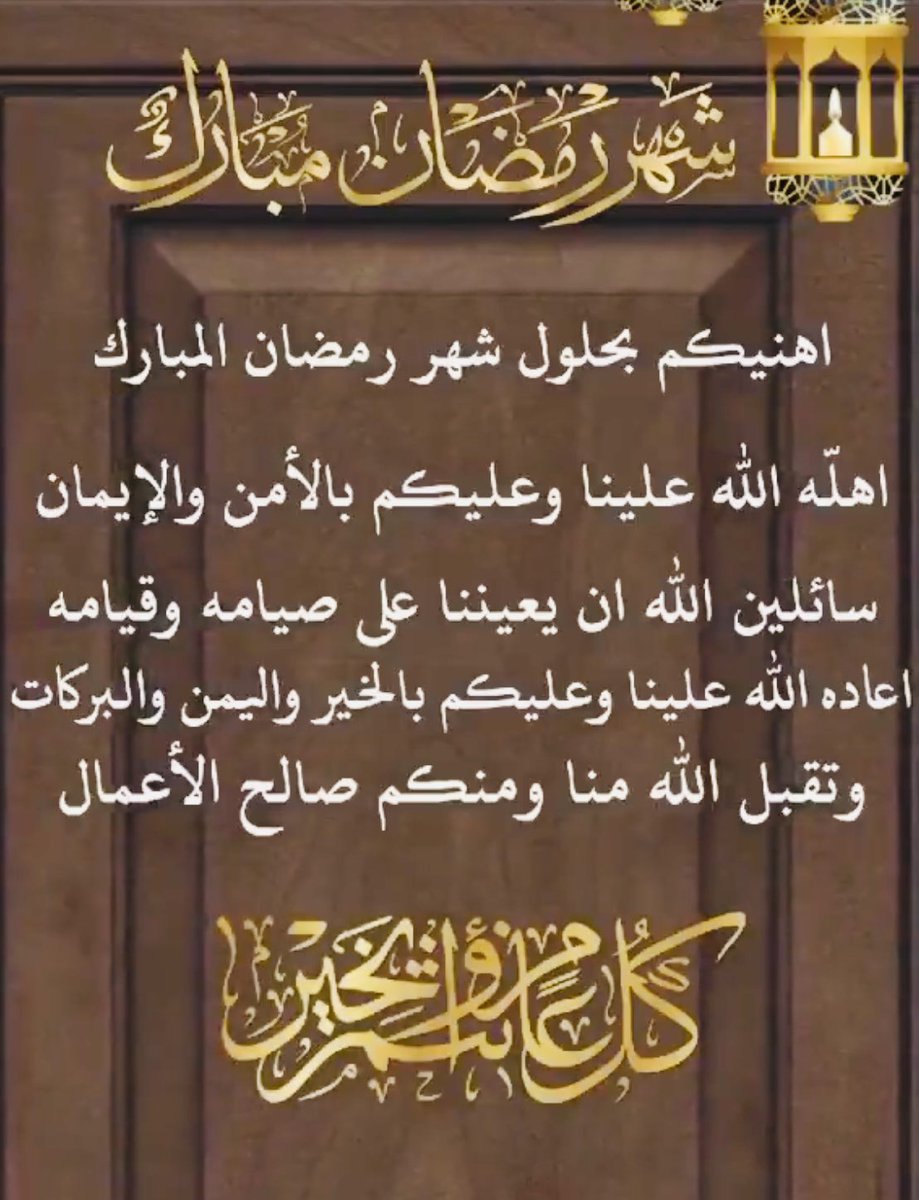 شهر رمضان مبارك
اهنيكم بحلول شهر رمضان المبارك
اهلّه الله علينا وعليكم بالأمن والإيمان
سائلين الله ان يعيننا على صيامه وقيامه
اعاده الله علينا وعليكم بالخير واليمن والبركات
وتقبل الله منا ومنكم صالح الأعمال
كل عام وأنتم بخير